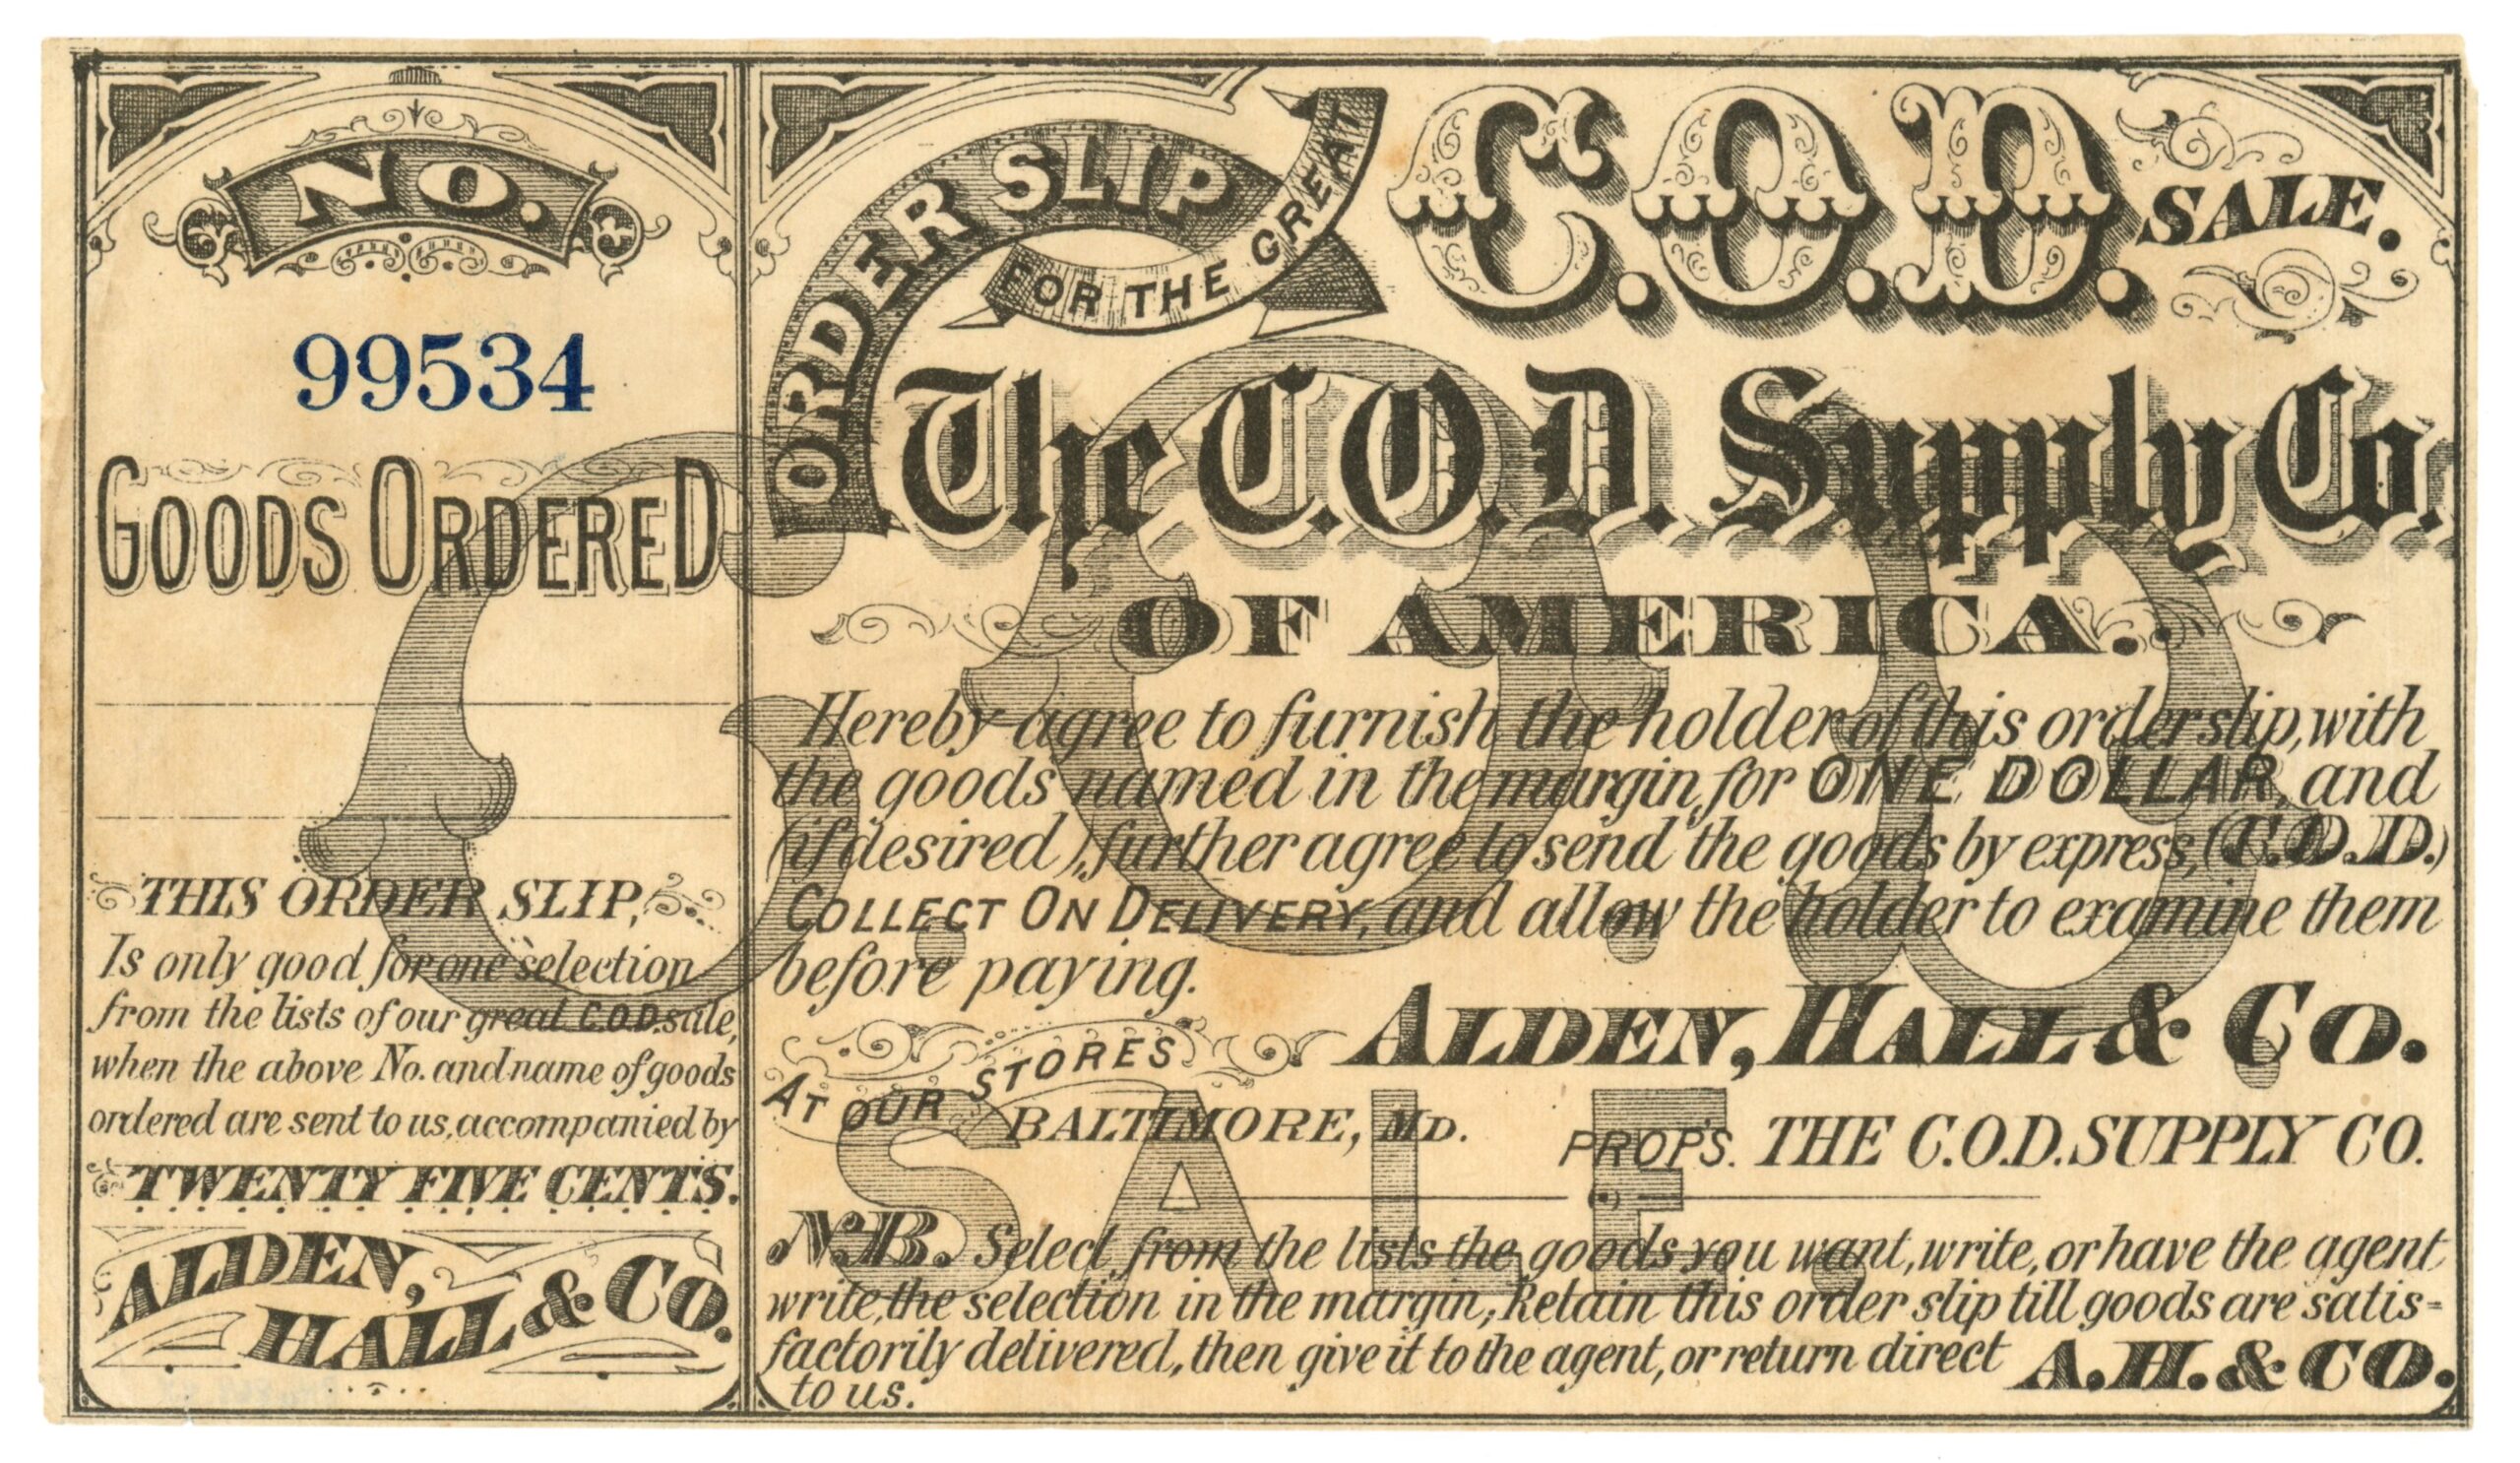 NO.
99534
GOODS ORDERED
THIS ORDER SLIP,
Is only good for one selection
from the lists of our great C.O.D. sale,
when the above No. and name of goods
ordered are sent to us, accompanied by
TWENTY FIVE CENTS.
ALDEN,
HALL & CO.
ORDER SLIP
FOR THE GREAT
C.O.D.
SALE.
The C.O.D. Supply Co.
OF AMERICA.
Hereby agree to furnish the holder of this order slip, with
the goods named in the margin, for ONE DOLLAR, and
(if desired), further agree to send the goods by express, (C.O.D.)
COLLECT ON DELIVERY, and allow the holder to examine them
before paying.
ALDEN, HALL & CO.
AT OUR STORES
BALTIMORE, MD.
PROP'S. THE C.O.D. SUPPLY CO.
N.B. Select from the lists the goods you want, write, or have the agent
write, the selection in the margin; Retain this order slip till goods are satis=
factorily delivered, then give it to the agent, or return direct
to us.
A.H. & CO.
C.O.D.
SALE.